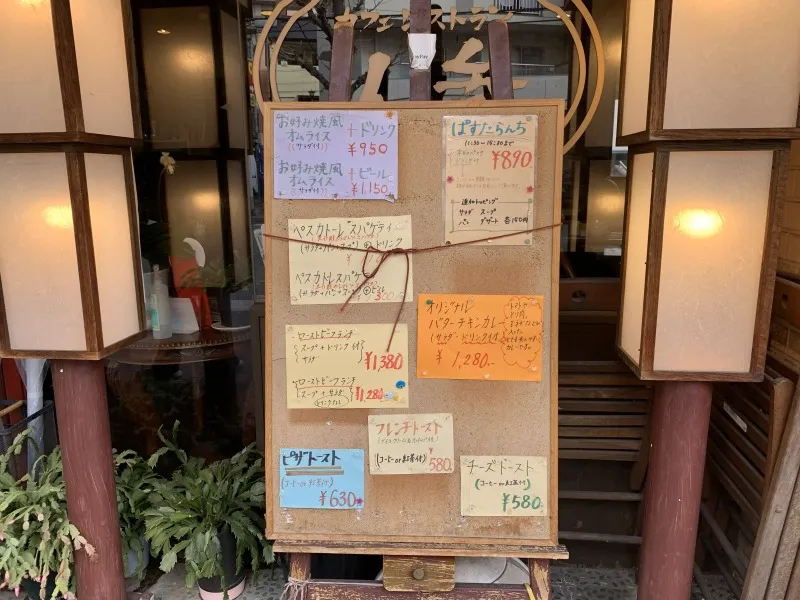 カフェレストラン
お好み焼風
オムライス
(サラダ付)
+ドリンク
¥950
お好み焼風
オムライス
(サラダ付)
+ビール
¥1,150
ぱすたらんち
¥890
追加トッピング
サラダ スープ
パン デザート 各150円
ペスカトーレスパゲティ
(サラダ+パン+スープ)⊕ドリンク
¥
ペスカトーレスパゲティ
ローストビーフランチ
スープ+ドリンク付
サラダ
¥1380
ローストビーフランチ
スープ+サラダ
¥1,280
オリジナル
バターチキンカレー
(サラダ・ドリンク付)
¥1,280-
フレンチトースト
(コーヒーor紅茶付)
¥580
ピザトースト
(コーヒーor紅茶付)
¥630
チーズトースト
(コーヒーor紅茶付)
¥580